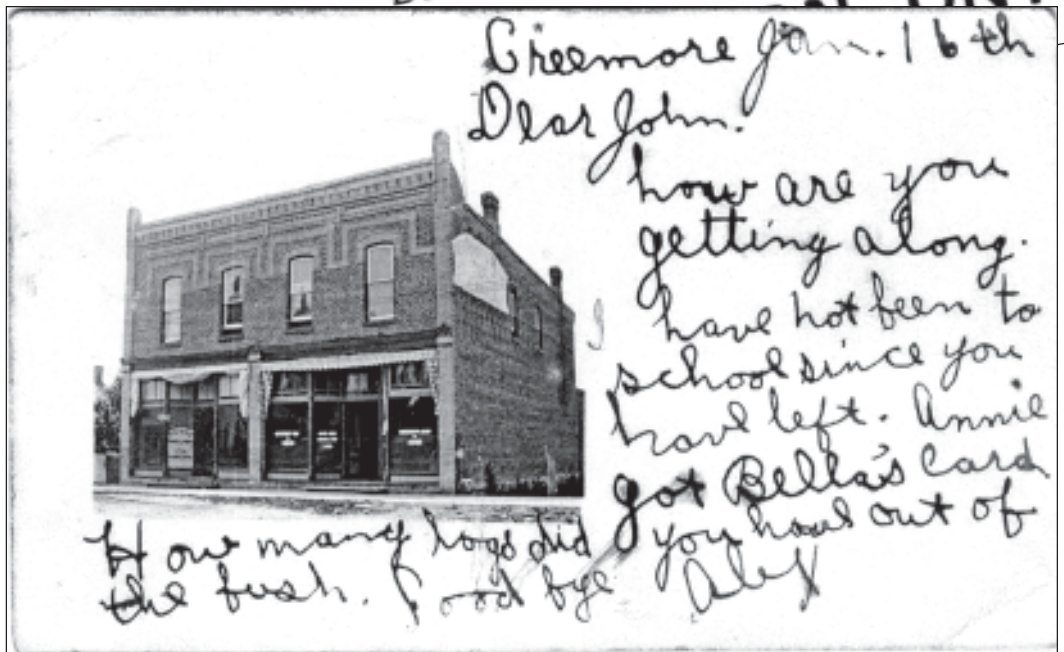 Creemore Jan. 16th
Dear John.
how are you
getting along.
I have not been to
school since you
have left. Annie
got Bella's Card
How many logs did you haul out of
the bush. Good bye Alex